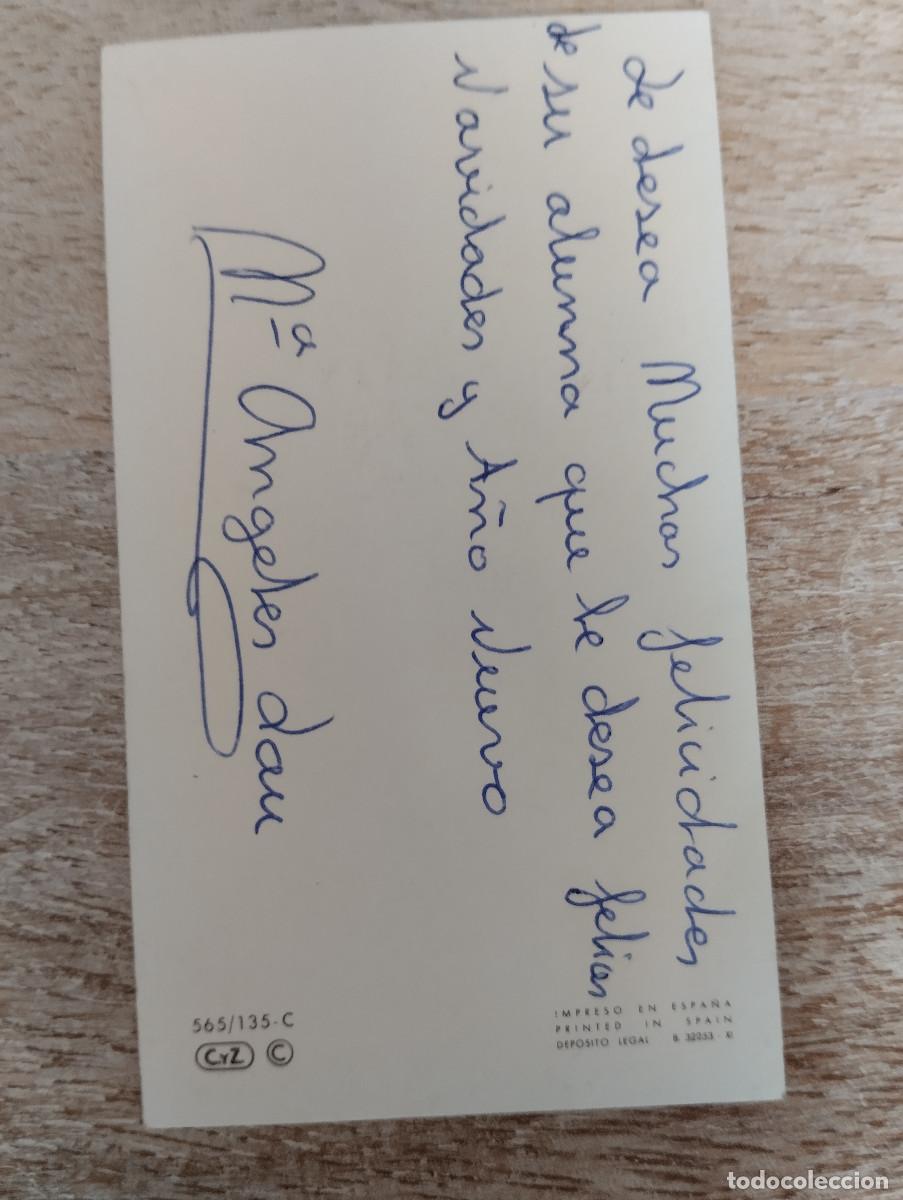 de desea Muchas felicidades
de su alumna que le desea felices
Navidades y Año Nuevo
Mª Angeles dau
565/135-C
CyZ ©
IMPRESO EN ESPAÑA
PRINTED IN SPAIN
DEPOSITO LEGAL B. 32053 - XI
todocoleccion